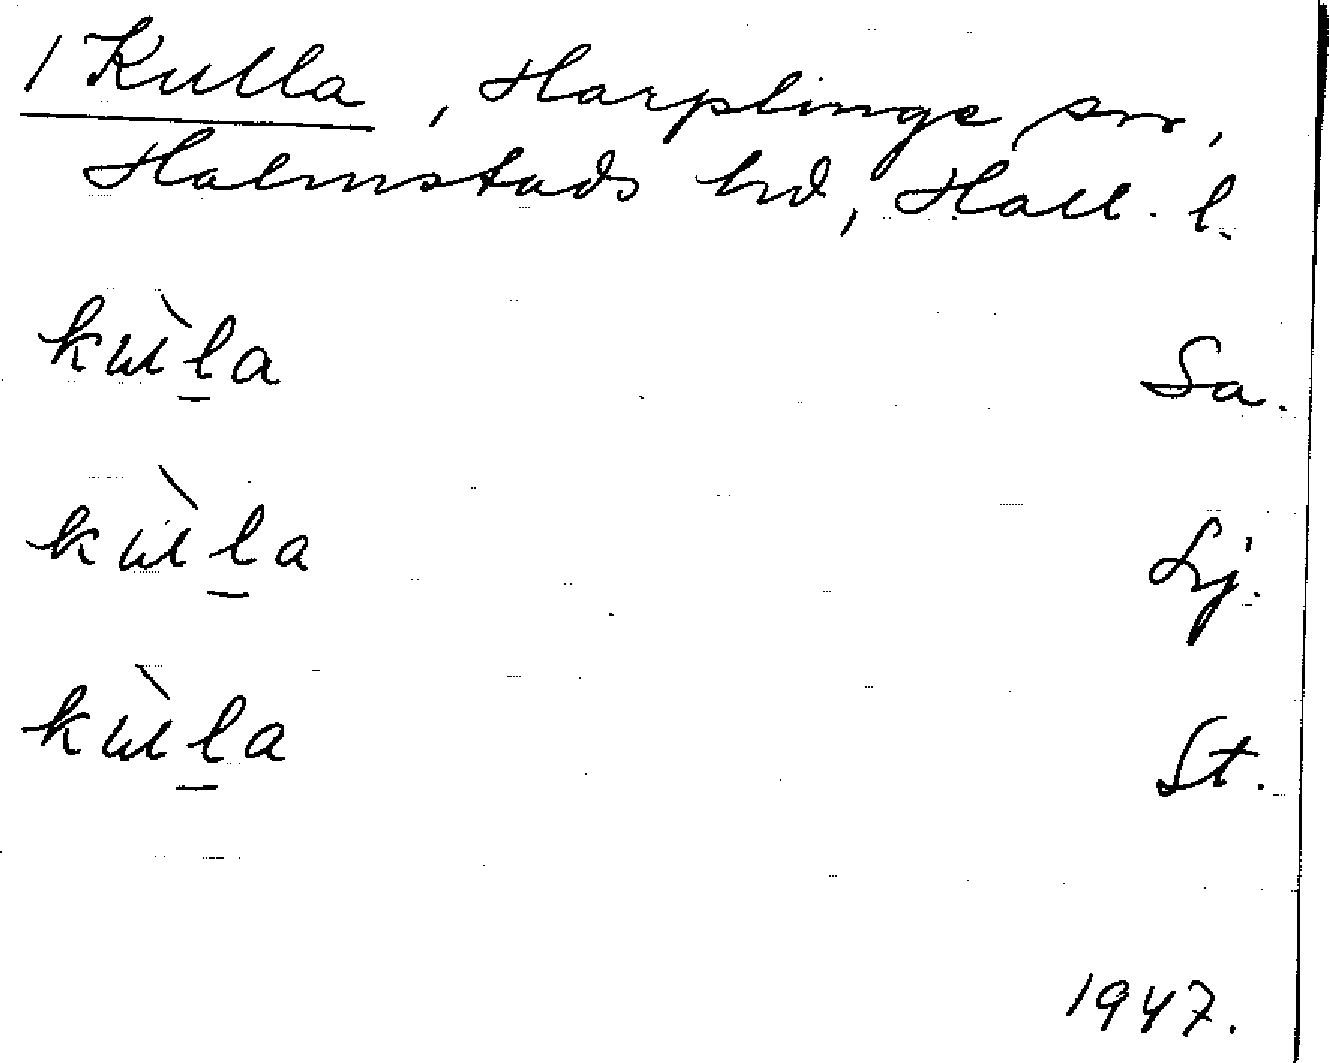 1 Kulla, Harplinge sn,
Halmstads hd, Hall. l.
kùl̲a Sa.
kùl̲a Lj.
kùl̲a St.
1947.